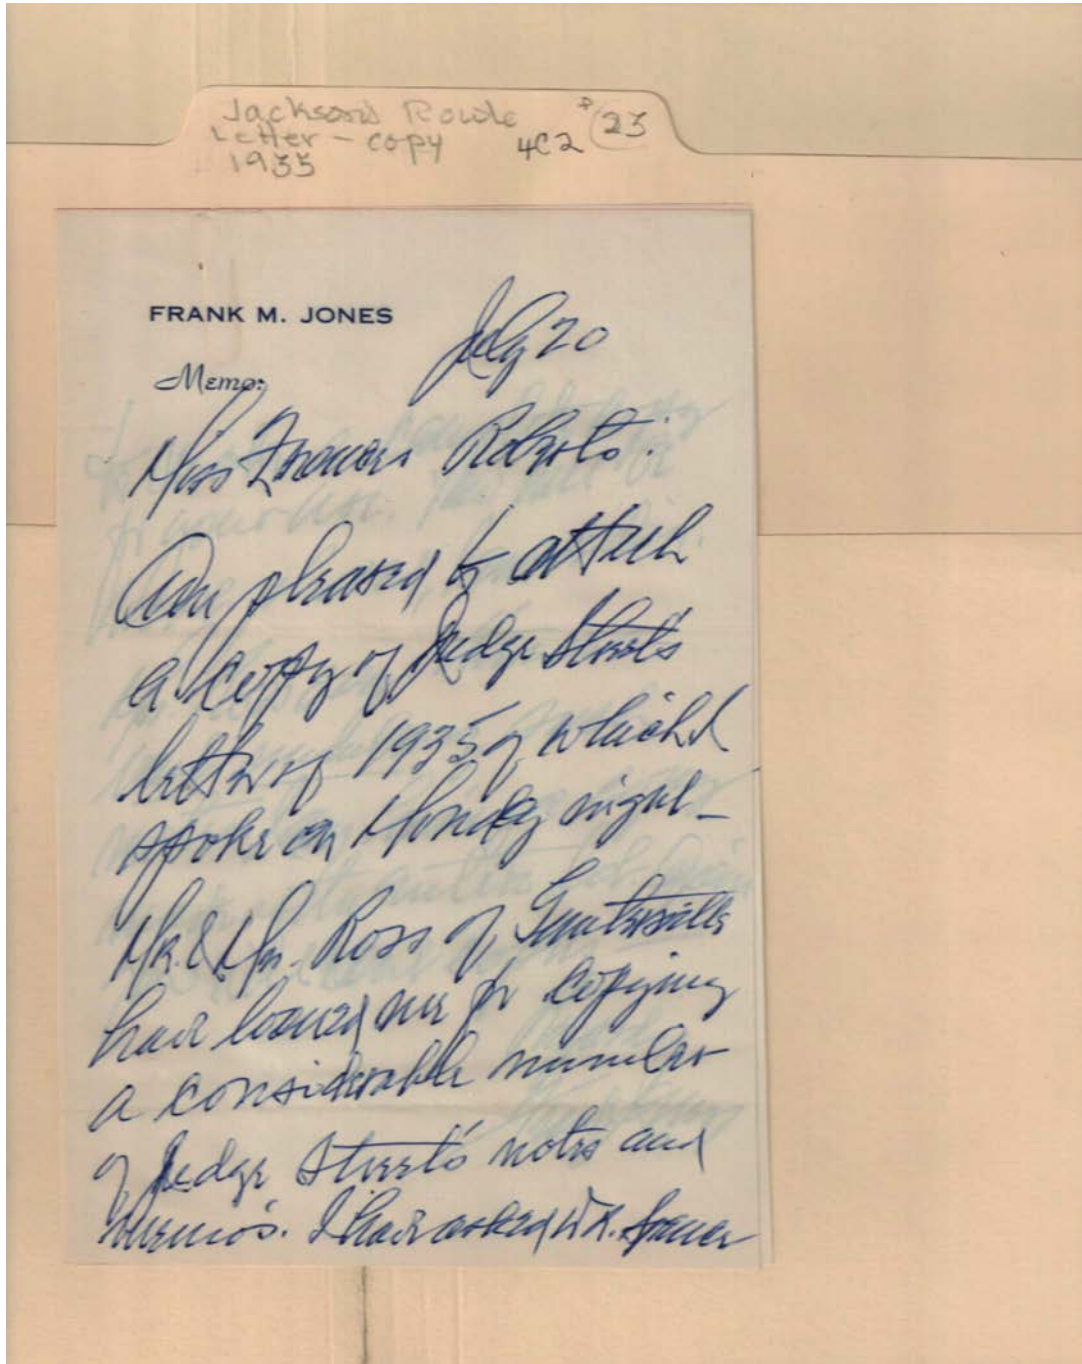 Jackson's Route
Letter - copy 4C2 23
1935
FRANK M. JONES
July 20
Memo:
Miss Frances Roberts:
Am pleased to attach
a copy of Judge Street's
letter of 1935 of which I
spoke on Monday night -
Mr. & Mrs. Ross of Guntersville
have loaned me for copying
a considerable number
of Judge Street's notes and
memos. I have asked